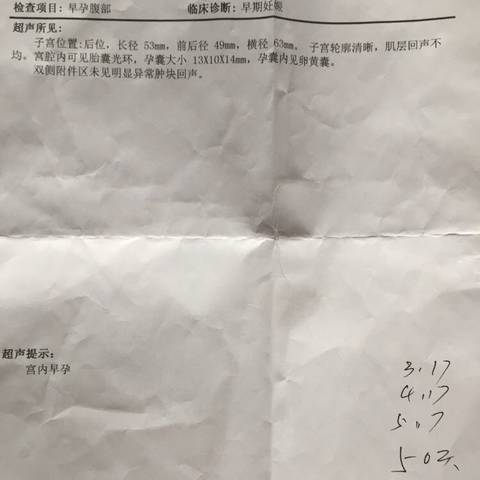 检查项目：早孕腹部 临床诊断：早期妊娠
超声所见：
子宫位置：后位，长径 53mm，前后径 49mm，横径 63mm。子宫轮廓清晰，肌层回声不
均。宫腔内可见胎囊光环，孕囊大小 13X10X14mm，孕囊内见卵黄囊。
双侧附件区未见明显异常肿块回声。
超声提示：
宫内早孕
3.17
4.17
5.7
50天